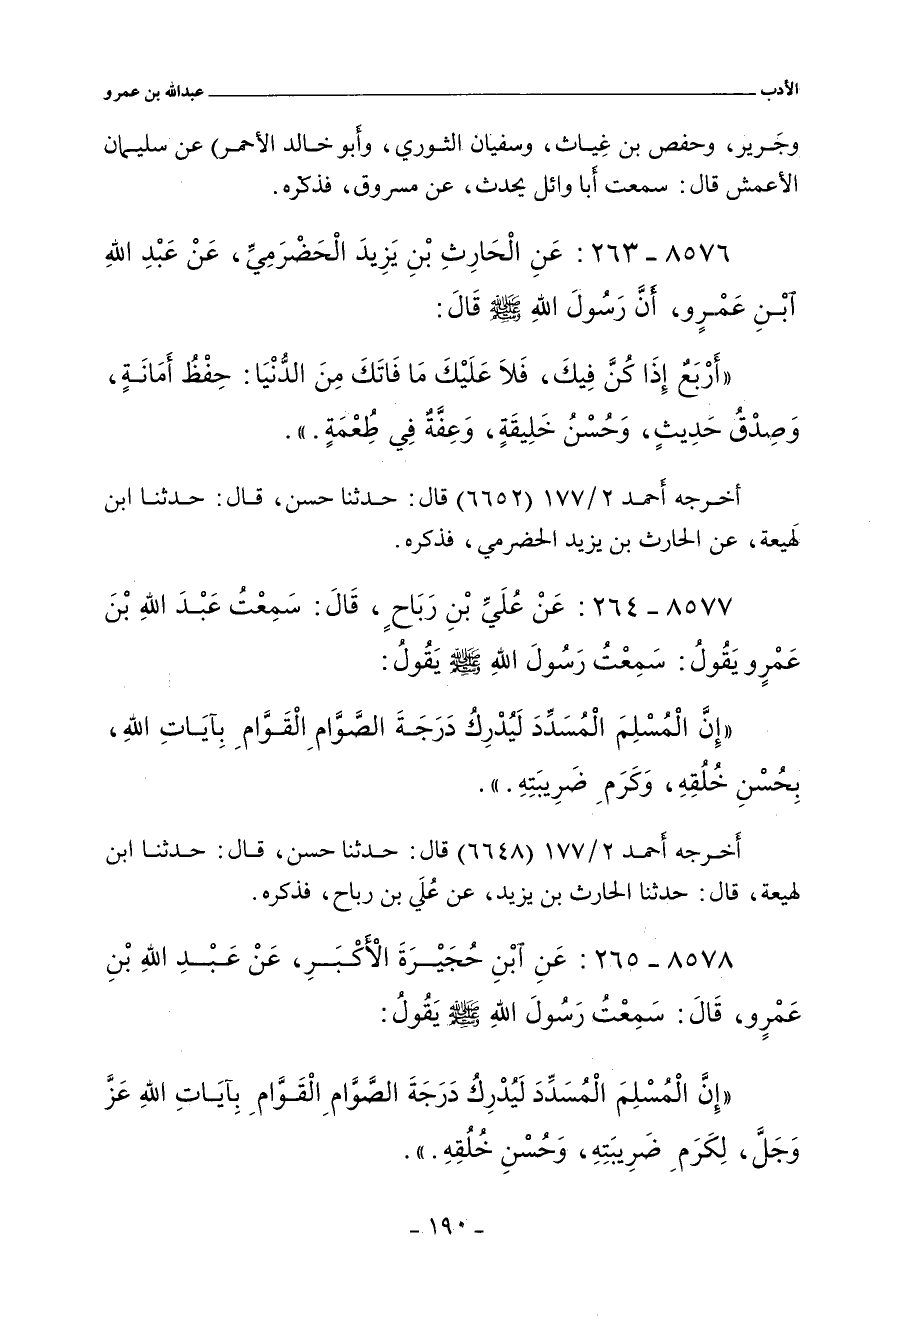 الأدب ـــــــــــــــــ عبدالله بن عمرو
وجَرير، وحفص بن غِياث، وسفيان الثوري، وأبو خالد الأحمر) عن سليمان
الأعمش قال: سمعت أبا وائل يحدث، عن مسروق، فذكره.
٨٥٧٦ ـ ٢٦٣ : عَنِ الْحَارِثِ بْنِ يَزِيدَ الْحَضْرَمِيِّ، عَنْ عَبْدِ اللهِ
آبْنِ عَمْرٍو، أَنَّ رَسُولَ اللهِ ﷺ قَالَ:
«أَرْبَعٌ إِذَا كُنَّ فِيكَ، فَلاَ عَلَيْكَ مَا فَاتَكَ مِنَ الدُّنْيَا: حِفْظُ أَمَانَةٍ،
وَصِدْقُ حَدِيثٍ، وَحُسْنُ خَلِيقَةٍ، وَعِفَّةٌ فِي طُعْمَةٍ.».
أخرجه أحمد ٢/١٧٧ (٦٦٥٢) قال: حدثنا حسن، قال: حدثنا ابن
لَهيعة، عن الحارث بن يزيد الحضرمي، فذكره.
٨٥٧٧ ـ ٢٦٤ : عَنْ عُلَيِّ بْنِ رَبَاحٍ، قَالَ: سَمِعْتُ عَبْدَ اللهِ بْنَ
عَمْرٍو يَقُولُ: سَمِعْتُ رَسُولَ اللهِ ﷺ يَقُولُ:
«إِنَّ الْمُسْلِمَ الْمُسَدِّدَ لَيُدْرِكُ دَرَجَةَ الصَّوَّامِ الْقَوَّامِ بِآيَاتِ اللهِ،
بِحُسْنِ خُلُقِهِ، وَكَرَمِ ضَرِيبَتِهِ.».
أخرجه أحمد ٢/١٧٧ (٦٦٤٨) قال: حدثنا حسن، قال: حدثنا ابن
لهيعة، قال: حدثنا الحارث بن يزيد، عن عُلَي بن رباح، فذكره.
٨٥٧٨ ـ ٢٦٥ : عَنِ آبْنِ حُجَيْرَةَ الْأَكْبَرِ، عَنْ عَبْدِ اللهِ بْنِ
عَمْرٍو، قَالَ: سَمِعْتُ رَسُولَ اللهِ ﷺ يَقُولُ:
«إِنَّ الْمُسْلِمَ الْمُسَدِّدَ لَيُدْرِكُ دَرَجَةَ الصَّوَّامِ الْقَوَّامِ بِآيَاتِ اللهِ عَزَّ
وَجَلَّ، لِكَرَمِ ضَرِيبَتِهِ، وَحُسْنِ خُلُقِهِ.».
ـ ١٩٠ ـ